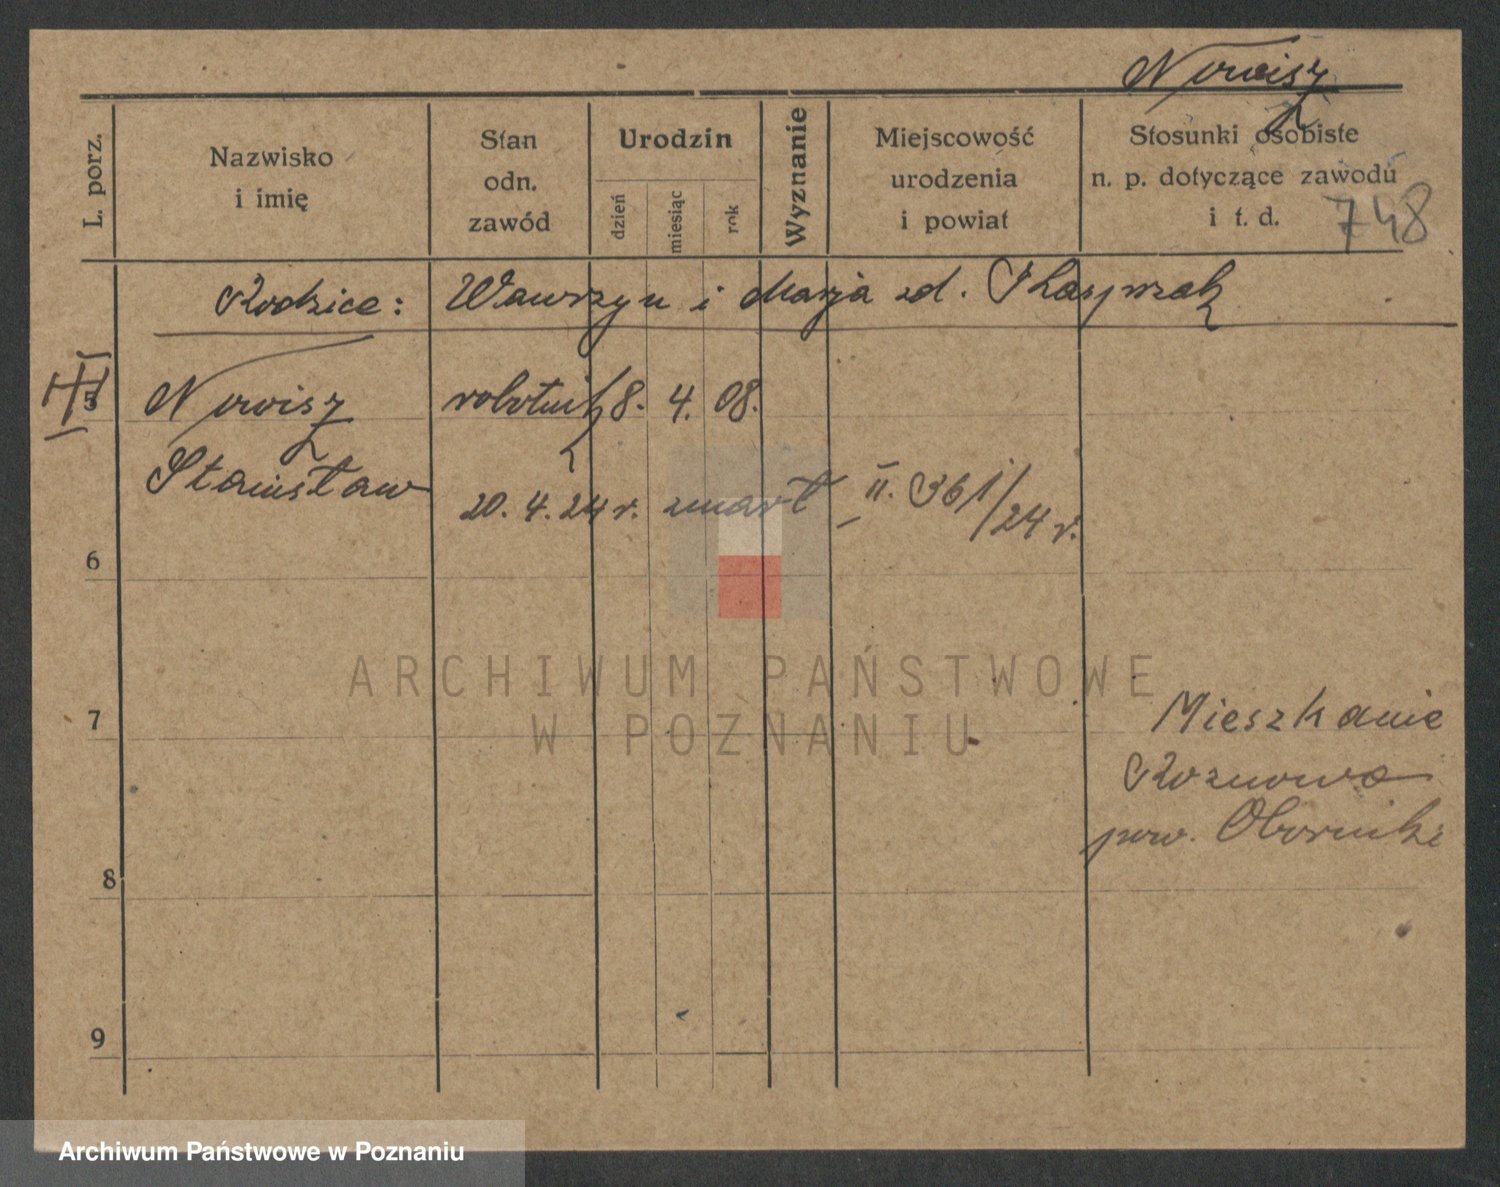 Nowisz
L. porz.
Nazwisko
i imię
Stan
odn.
zawód
Urodzin
dzień
miesiąc
rok
Wyznanie
Miejscowość
urodzenia
i powiat
Stosunki osobiste
n. p. dotyczące zawodu
i t. d.
748
Rodzice: Wawrzyn i Marja zd. Kasprzak
5 Nowisz robotnik 8. 4. 08.
Stanisław
20. 4. 24 r. zmarł II. 361/24 r.
6
ARCHIWUM PAŃSTWOWE
W POZNANIU
7
Mieszkanie
Roznowo
pow. Oborniki
8
9
Archiwum Państwowe w Poznaniu